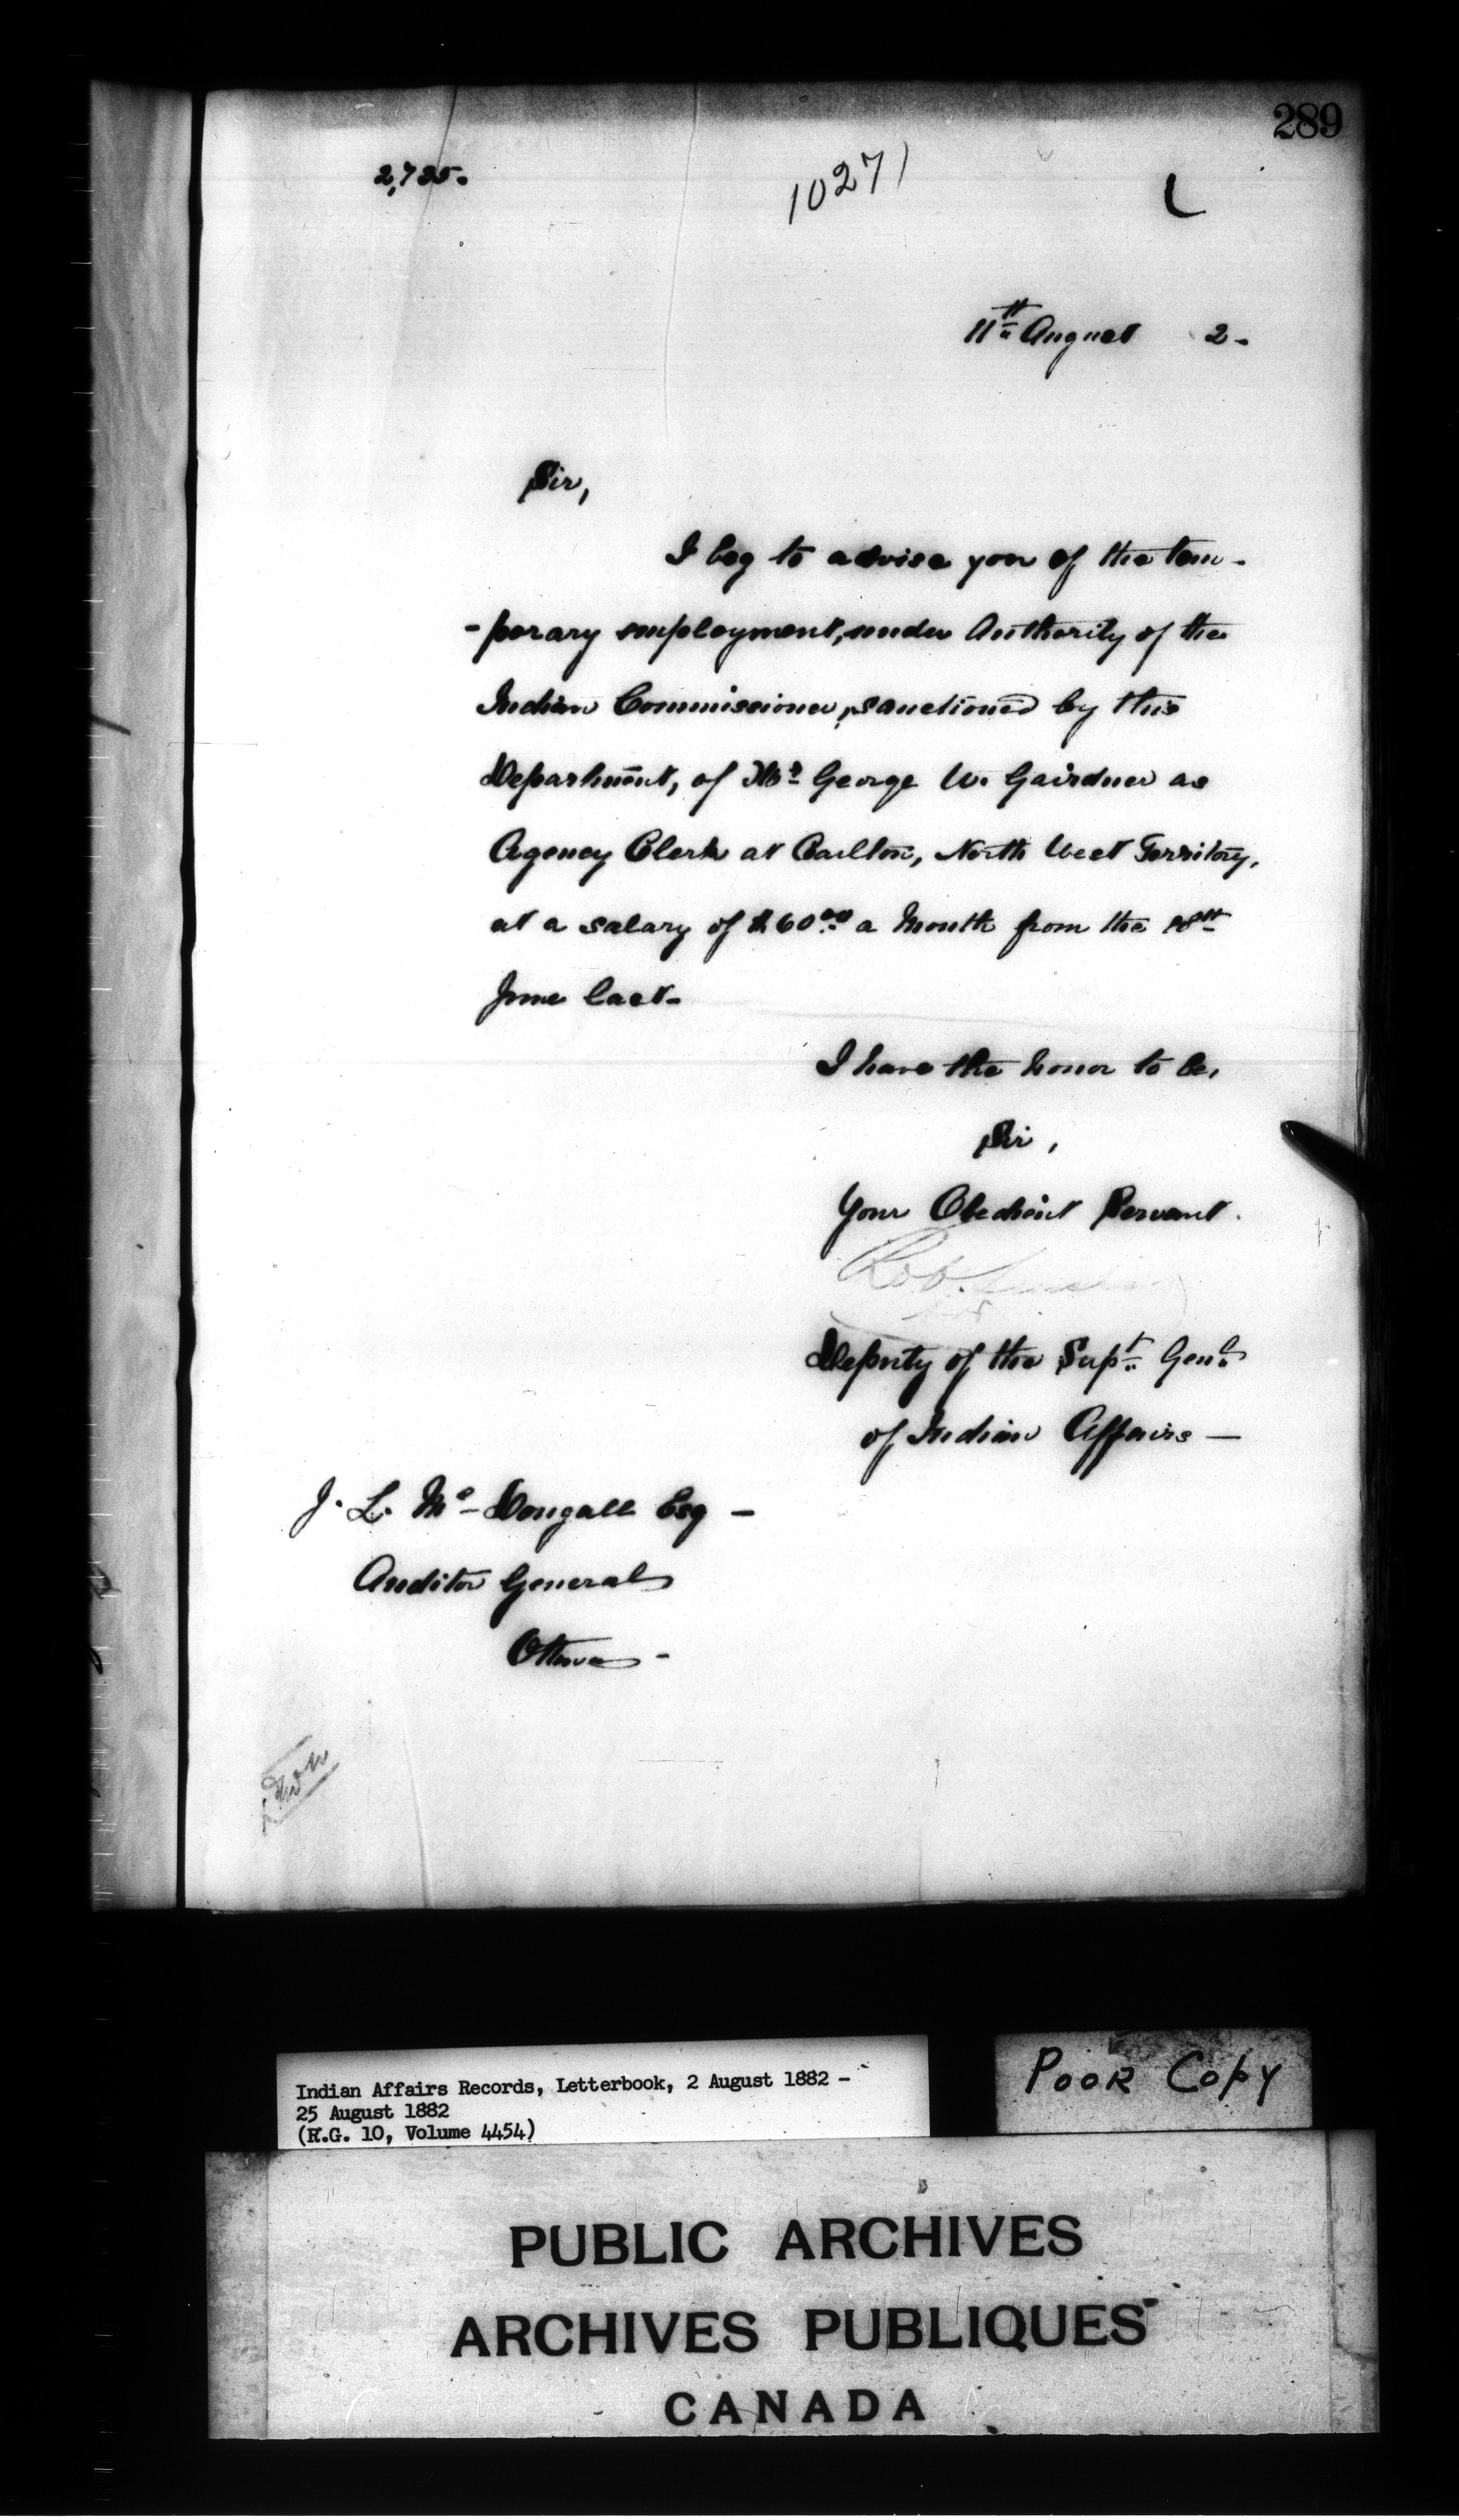 289
2,725.
10271
L
11th August 2.
Sir,
I beg to advise you of the tem-
-porary employment, under Authority of the
Indian Commissioner, sanctioned by this
Department, of Mr George W. Gairdner as
Agency Clerk at Carlton, North West Territory,
at a salary of $60.00 a Month from the
June last-
I have the honor to be,
Sir,
Your Obedient Servant.
Rob. Sinclair
for
Deputy of the Supt. Genl
of Indian Affairs —
J. L. Mc Dougall Esq —
Auditor General
Ottawa -
Indian Affairs Records, Letterbook, 2 August 1882 -
25 August 1882
(R.G. 10, Volume 4454)
POOR COPY
PUBLIC ARCHIVES
ARCHIVES PUBLIQUES
CANADA